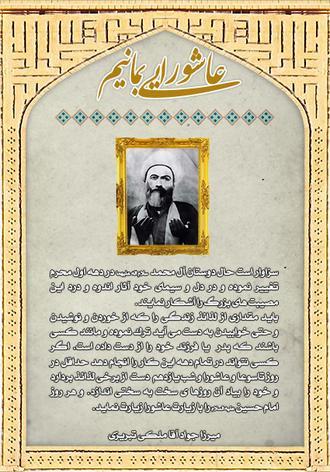 عاشورایی بمانیم
سزاوار است حال دوستان آل محمد در دهه اول محرم
تغییر نموده و در دل و سیمای خود آثار اندوه و درد این
مصیبت های بزرگ را آشکار نمایند.
باید مقداری از لذائذ زندگی را که از خوردن و نوشیدن
و حتی خوابیدن به دست می آید ترک نموده و مانند کسی
باشند که پدر یا فرزند خود را از دست داده است. اگر
کسی نتواند در تمام دهه این کار را انجام دهد حداقل در
روز تاسوعا و عاشورا و شب یازدهم دست از برخی لذائذ بردارد
و خود را بیاد آن روزهای سخت به سختی اندازد. و هر روز
امام حسین را با زیارت عاشورا زیارت نماید.
میرزا جواد آقا ملکی تبریزی